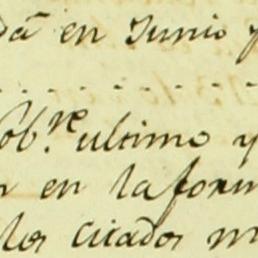 dā en Junio y
. . . . . . . . . .
Nob.re ultimo y
n en la form
los citados m